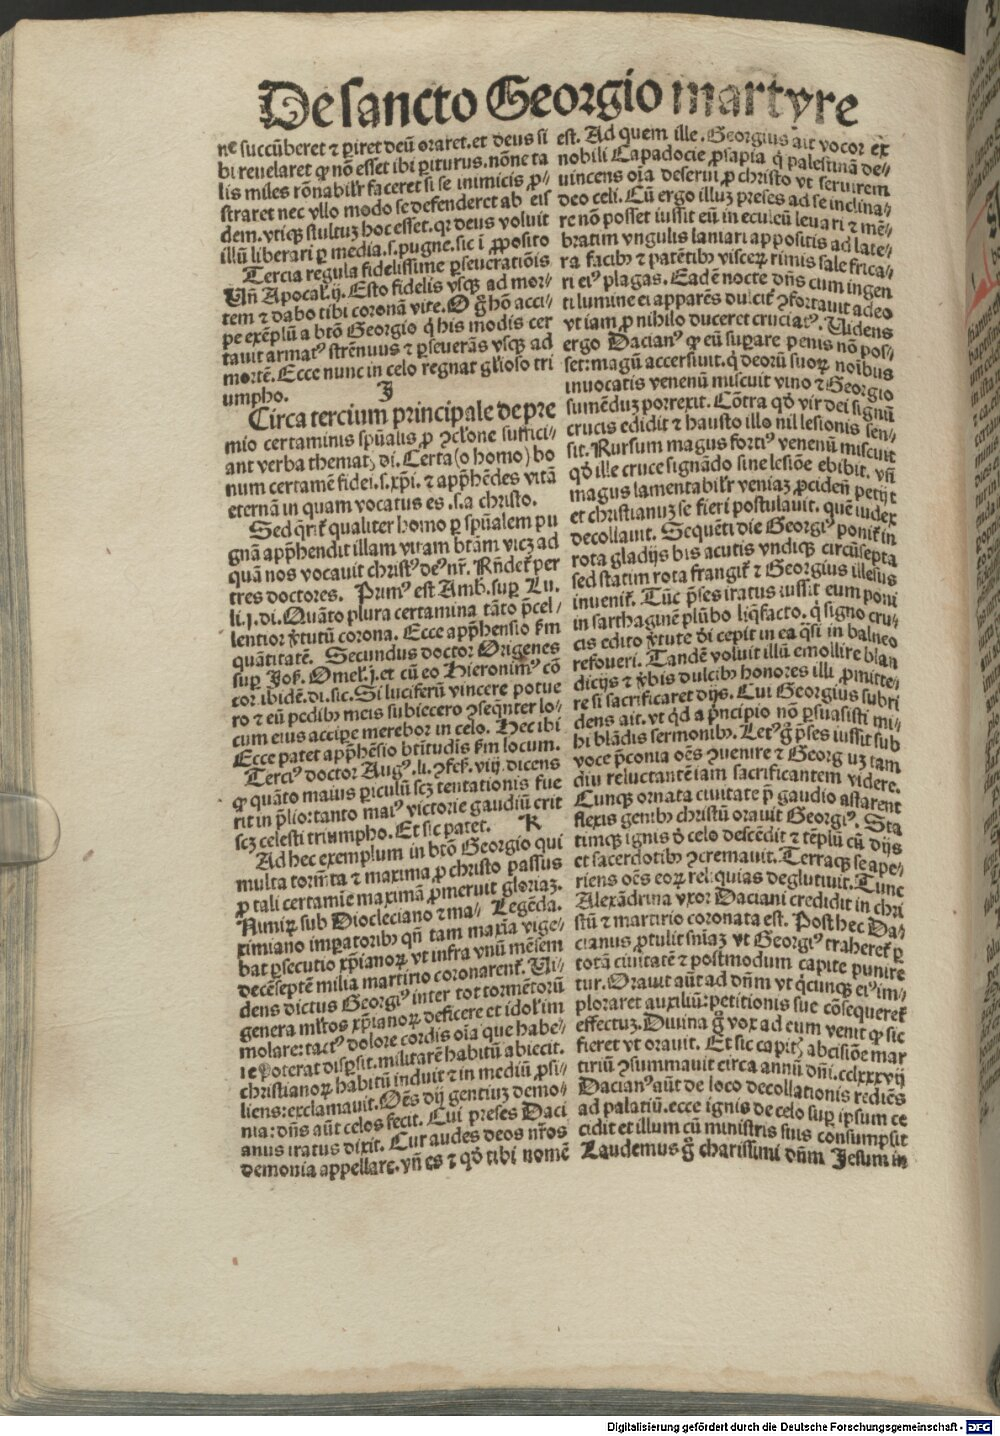 De sancto Georgio martyre
ne succūberet ⁊ ꝑiret deū oraret. et deus si
bi reuelaret ꝙ nō esset ibi ꝑiturus. nōne ta
lis miles rōnabilr̄ faceret si se inimicis ꝓ⸗
straret nec vllo modo se defenderet ab eis
dem. vtiqꝫ stultuꝫ hoc esset. qꝛ deus voluit
illū liberari ꝑ media .s. pugne. sic ī ꝓposito
Tercia regula fidelissime ꝑseueratiōis
Vn̄ Apocal̓. ij. Esto fidelis vsqꝫ ad mor⸗
tem ⁊ dabo tibi coronā vite. O g̊ hō acci⸗
pe exēplū a btō Georgio q̇ his modis cer
tauit armatꝰ strēnuus ⁊ ꝑseuerās vsqꝫ ad
mortē. Ecce nunc in celo regnat gl̓ioso tri
umpho. J
Circa tercium principale de pre
mio certaminis spūalis ꝓ ꝯclōne suffici⸗
ant verba thematꝭ di. Certa (o homo) bo
num certamē fidei .s. xp̄i. ⁊ app̄hēdes vitā
eternā in quam vocatus es .s. a christo.
Sed q̄rit̓ qualiter homo ꝑ spūalem pu
gnā app̄hendit illam vitam btām vicꝫ ad
quā nos vocauit christꝰ deꝰ nr̄. Rn̄det̓ per
tres doctores. Primꝰ est Amb. suꝑ Lu.
li. j. di. Quāto plura certamina tāto p̄cel⸗
lentior v̓tutū corona. Ecce app̄hensio s̄m
quātitatē. Secundus doctor Origenes
suꝑ Jos̓. Omel̓. j. et cū eo Hieronimꝰ cō
cor. ibidē. di. sic. Si luciferū vincere potue
ro ⁊ eū pedibꝫ meis subiecero ꝯseq̄nter lo⸗
cum eius acciꝑe merebor in celo. Hec ibi
Ecce patet app̄hēsio btītudīs s̄m locum.
Terciꝰ doctor Augꝰ. li. ꝯfes̓. viij. dicens
ꝙ quāto maius ꝑiculū scꝫ tentationis fue
rit in p̄lio: tanto maiꝰ victorie gaudiū erit
scꝫ celesti triumpho. Et sic patet. K
Ad hec exemplum in btō Georgio qui
multa torm̄ta ⁊ maxima ꝓ christo passus
ꝓ tali certamīe maximā ꝓmeruit gloriaꝫ.
Nimiꝝ sub Diocleciano ⁊ ma⸗ Legēda.
ximiano imꝑatoribꝫ qn̄ tam maxīa vige⸗
bat ꝑsecutio xp̄ianoꝝ vt infra vnū mēsem
decēseptē milia martirio coronarent̓. Vi⸗
dens dictus Georgiꝰ inter tot tormētorū
genera ml̓tos xp̄ianoꝝ deficere et idol̓ im
molare: tactꝰ dolore cordis oīa que habe⸗
re poterat disꝑsit. militarē habitū abiecit.
christianoꝝ habitū induit ⁊ in mediū ꝓsi⸗
liens: exclamauit. Oēs dij gentiuꝫ demo⸗
nia: dn̄s aūt celos fecit. Cui preses Daci
anus iratus dixit. Cur audes deos nr̄os
demonia appellare. vn̄ es ⁊ qd̓ tibi nomē
est. Ad quem ille. Georgius ait vocor ex
nobili Capadocie ꝓsapia q̇ palestinā de⸗
uincens oīa deserui ꝓ christo vt seruirem
deo celi. Cū ergo illuꝫ preses ad se inclina⸗
re nō posset iussit eū in eculeū leuari ⁊ mē⸗
bratim vngulis laniari appositis ad late⸗
ra facibꝫ ⁊ patētibꝫ visceꝝ rimis sale frica⸗
ri eiꝰ plagas. Eadē nocte dn̄s cum ingen
ti lumine ei apparēs dulcit̓ ꝯfortauit adeo
vt iam ꝓ nihilo duceret cruciatꝰ. Videns
ergo Dacianꝰ ꝙ eū suꝑare penis nō pos⸗
set: magū accersiuit. q̇ deorū suoꝝ noībus
inuocatis venenū miscuit vino ⁊ Georgio
sumēduꝫ porrexit. Cōtra qd̓ vir dei signū
crucis edidit ⁊ hausto illo nil lesionis sen⸗
sit. Rursum magus fortiꝰ venenū miscuit
qd̓ ille cruce signādo sine lesiōe ebibit. vn̄
magus lamentabilr̄ veniaꝫ ꝓciden̄ petijt
et christianuꝫ se fieri postulauit. quē iudex
decollauit. Sequēti die Georgiꝰ ponit̓ in
rota gladijs bis acutis vndiqꝫ circūsepta
sed statim rota frangit̓ ⁊ Georgius illesus
inuenit̓. Tūc p̄ses iratus iussit eum poni
in sarthaginē plūbo liq̄facto. q̇ signo cru⸗
cis edito v̓tute dei cepit in ea q̄si in balneo
refoueri. Tandē voluit illū emollire blan
dicijs ⁊ v̓bis dulcibꝫ honores illi ꝓmitte⸗
re si sacrificaret dijs. Cui Georgius subri
dens ait. vt qd̓ a p̄ncipio nō ꝑsuasisti mi⸗
hi blādis sermonibꝫ. Letꝰ g̊ p̄ses iussit sub
voce p̄conia oēs ꝯuenire ⁊ Georg uꝫ tam
diu reluctantē iam sacrificantem videre.
Cunqꝫ ornata ciuitate p̄ gaudio astarent
flexis genibꝫ christū orauit Georgiꝰ. Sta
timqꝫ ignis d̓ celo descēdit ⁊ tēplū cū dijs
et sacerdotibꝫ ꝯcremauit. Terraqꝫ se ape⸗
riens oēs eoꝝ reliquias deglutiuit. Tunc
Alexādrina vxor Daciani credidit in chri
stū ⁊ martirio coronata est. Post hec Da⸗
cianus ꝓtulit snīaꝫ vt Georgiꝰ traheret̓ ꝑ
totā ciuitatē ⁊ postmodum capite punire
tur. Orauit aūt ad dn̄m vt q̇cunqꝫ eiꝰ im⸗
ploraret auxiliū: petitionis sue cōsequeret̓
effectuꝫ. Diuina g̊ vox ad eum venit ꝙ sic
fieret vt orauit. Et sic capitꝭ abcisiōe mar
tiriū ꝯsummauit circa annū dn̄i. cclxxxvij
Dacianꝰ aūt de loco decollationis rediēs
ad palatiū. ecce ignis de celo suꝑ ipsum ce
cidit et illum cū ministris suis consumpsit
Laudemus g̊ charissimi dn̄m Jesum in
Digitalisierung gefördert durch die Deutsche Forschungsgemeinschaft - DFG